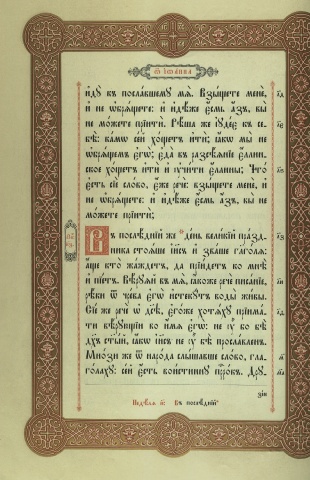 Ѿ Іѡанна
иду къ пославшему мѧ. Взыщете мене,
и не ѡбрѧщете: и идѣже есмь азъ, вы
не можете прїити. Рѣша же іудее къ се-
бѣ: камѡ сей хощетъ ити; ꙗкѡ мы не
ѡбрѧщемъ егѡ; еда въ разсѣѧнїе еллин-
ское хощетъ ити и учити еллины; Что
есть сїе слово, еже рече: взыщете мене, и
не ѡбрѧщете: и идѣже есмь азъ, вы не
можете прїити;
Въ послѣднїй же день великїй празд-
ника стоѧше іисъ и зваше глаголѧ:
аще кто жаждетъ, да прїидетъ ко мнѣ
и пїетъ. Вѣруѧй въ мѧ, ꙗкоже рече писанїе,
рѣки ѿ чрева егѡ истекутъ воды живы.
Сїе же рече ѡ дсѣ, егоже хотѧху прїима-
ти вѣрующїи во имѧ егѡ: не у бо бѣ
дхъ стый, ꙗкѡ іисъ не у бѣ прославленъ.
Мнози же ѿ народа слышавше слово, гла-
голаху: сей есть воистинну пррокъ. Дру-
Недѣлѧ Въ послѣднїй